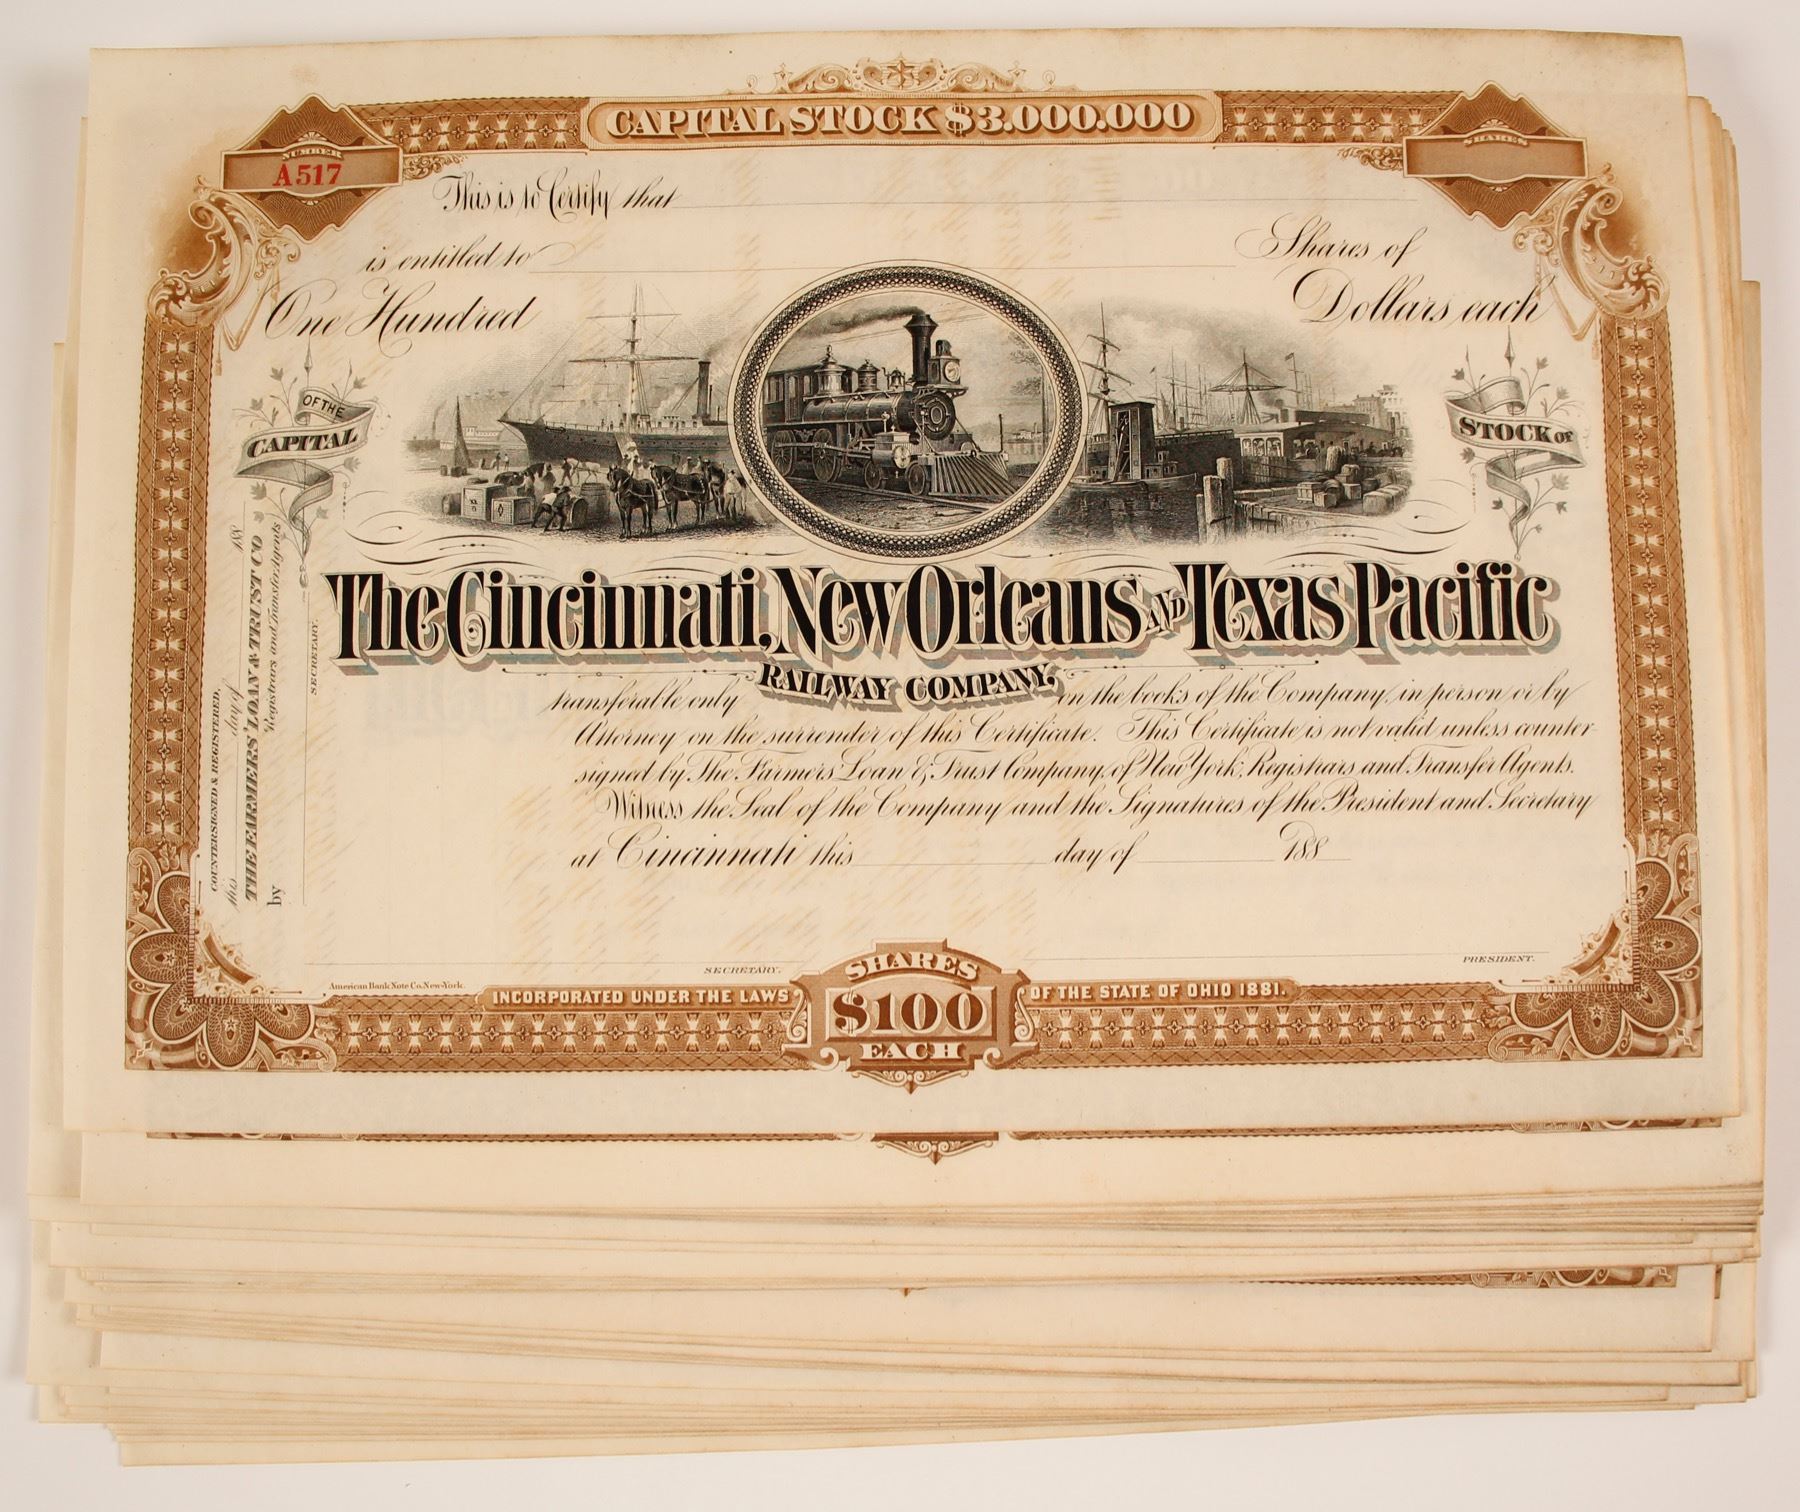 CAPITAL STOCK $3.000.000
NUMBER
A517
SHARES
This is to Certify that
is entitled to Shares of
One Hundred Dollars each
OF THE
CAPITAL
STOCK OF
The Cincinnati, New Orleans AND Texas Pacific
RAILWAY COMPANY,
transferable only on the books of the Company, in person or by
Attorney on the surrender of this Certificate. This Certificate is not valid unless counter-
signed by The Farmers Loan & Trust Company, of New York, Registrars and Transfer Agents.
Witness the Seal of the Company and the Signatures of the President and Secretary
at Cincinnati this day of 188
COUNTERSIGNED & REGISTERED,
this day of 188
THE FARMERS' LOAN & TRUST CO
Registrars and Transfer Agents
by
SECRETARY.
SECRETARY.
PRESIDENT.
American Bank Note Co. New-York.
INCORPORATED UNDER THE LAWS OF THE STATE OF OHIO 1881.
SHARES
$100
EACH